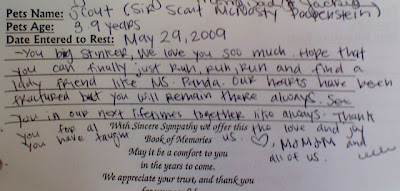 Pets Name: Scout (Sir Scout McNasty Poopenstein)
Pets Age: 3 9 years
Date Entered to Rest: May 29, 2009
~You big stinker, We love you soo much. Hope that
you can finally just run, run, run and find a
lady friend like Ms. Panda. Our hearts have been
fractured but you will remain there always. See
you in our next lifetimes together like always. Thank
you for all the love and joy
With Sincere Sympathy we offer this
you have taught us. ♡, MOMMM and
Book of Memories
all of us.
May it be a comfort to you
in the years to come.
We appreciate your trust, and thank you